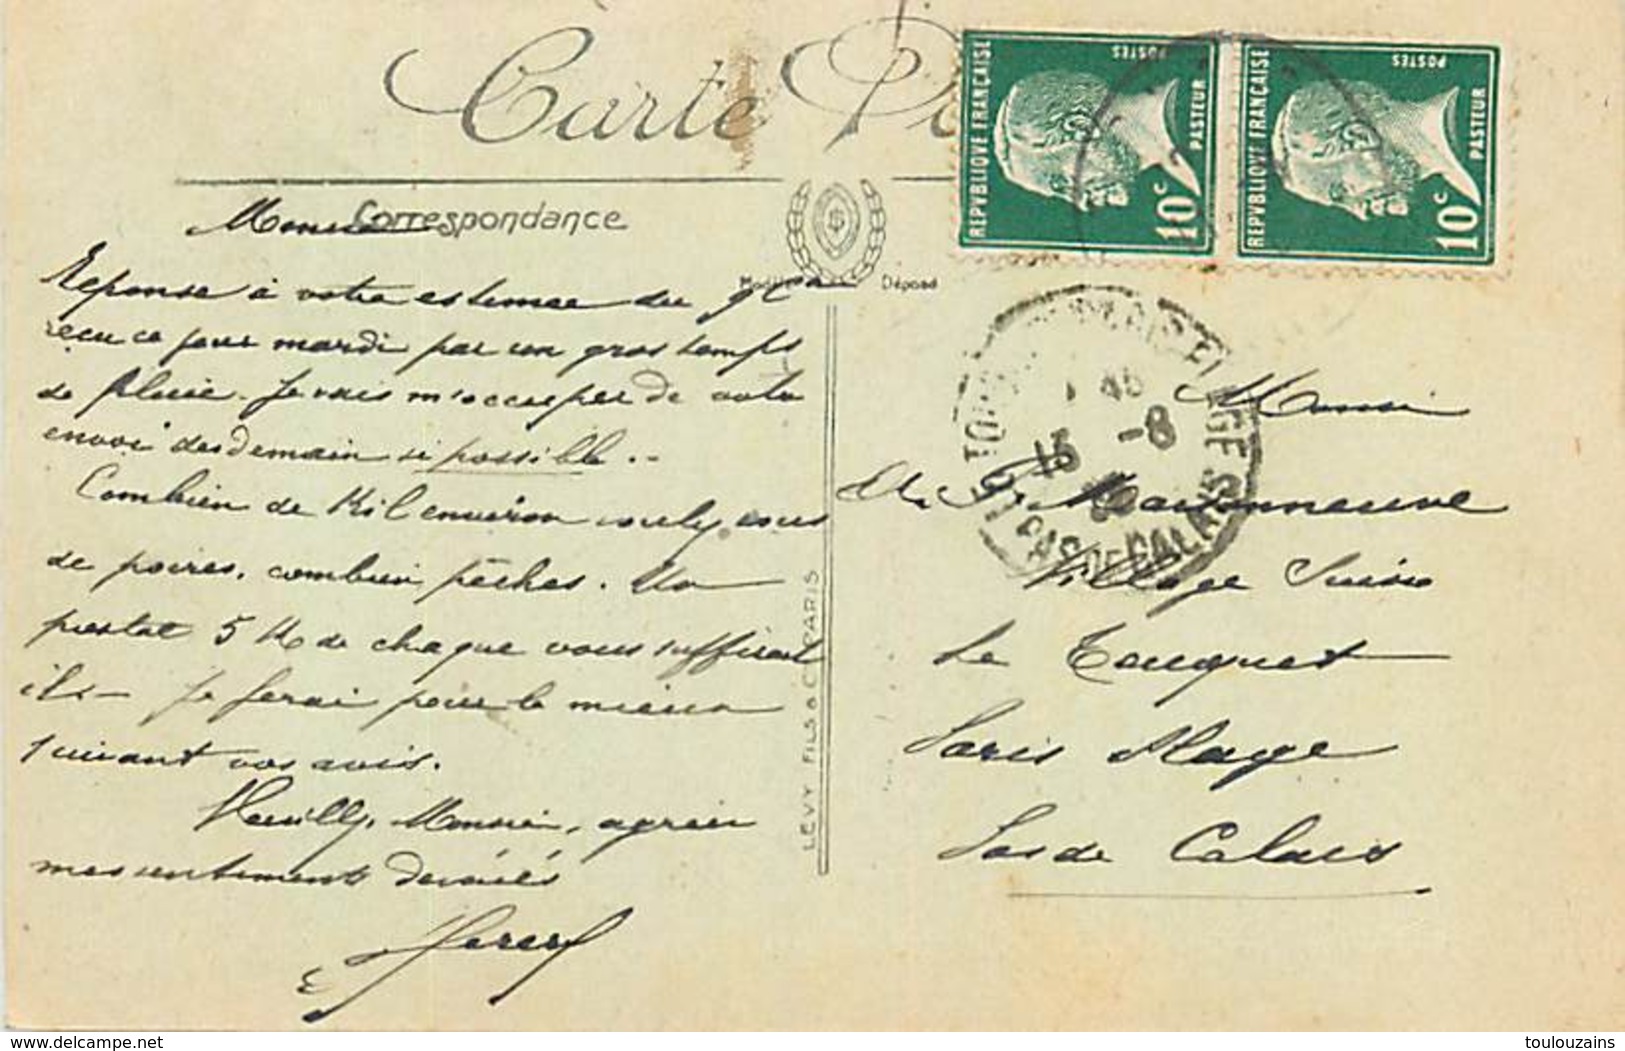 Carte
Correspondance
Monsieur
Réponse à votre estimee du 9 ct
recu ce jour mardi par un gros temps
de pluie. Je vais m'occuper de votre
envoi des demain si possible..
Combien de Kil environ voulez vous
de poires, combien pêches. Un
postal 5 K de chaque vous suffirait
il - Je ferai pour le mieux
suivant vos avis.
Veuillez, Monsieur, agréer
mes sentiments dévoués
Modèle Déposé
LEVY FILS & Cie PARIS
REPVBLIQVE FRANÇAISE
POSTES
PASTEUR
10c
REPVBLIQVE FRANÇAISE
POSTES
PASTEUR
10c
45
15 -8
PAS DE CALAIS
Monsieur
Maisonneuve
Village Suisse
Le Touquet
Paris Plage
Pas de Calais
delcampe.net
toulouzains